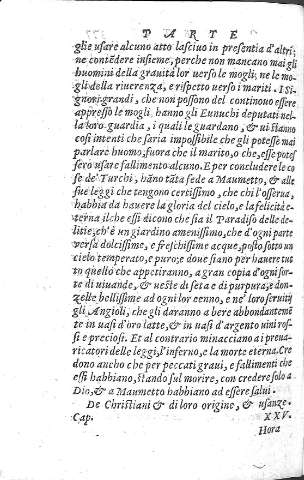 PARTE
glie usare alcuno atto lasciuo in presentia d'altri;
ne contẽdere insieme, perche non mancano mai gli
huomini della grauità lor uerso le mogli; ne le mo-
gli della riuerenza, e rispetto uerso i mariti. I Si-
gnori grandi, che non possono del continouo essere
appresso le mogli, hanno gli Eunuchi deputati nel-
la loro guardia, i quali le guardano, & ui stanno
cosi intenti che saria impossibile che gli potesse mai
parlare huomo, fuora che il marito, o che, esse potes
sero usare fallimento alcuno. E per concludere le co
se de' Turchi, hãno tãta fede a Maumetto, & alle
sue leggi che tengono certissimo, che chi l'osserua,
habbia da hauere la gloria del cielo, e la felicità e-
terna ilche essi dicono che sia il Paradiso delle de-
litie, ch'è un giardino amenissimo, che d'ogni parte
uersa dolcissime, e freschissime acque, posto sotto un
cielo temperato, e puro, e doue siano per hauere tut
to quello che appetiranno, a gran copia d'ogni sor-
te di uiuande, & ueste di seta e di purpura, e don-
zelle bellissime ad ogni lor cenno, e ne' loro seruitÿ
gli Angioli, che gli daranno a bere abbondantemẽ
te in uasi d'oro latte, & in uasi d'argento uini ros-
si e preciosi. Et al contrario minacciano a i preua-
ricatori delle leggi, l'inferno, e la morte eterna. Cre
dono ancho che per peccati graui, e fallimenti che
essi habbiano, stando sul morire, con credere solo a
Dio, & a Maumetto habbiano ad essere salui.
De Christiani & di loro origine, & usanze.
Cap. XXV.
Hora